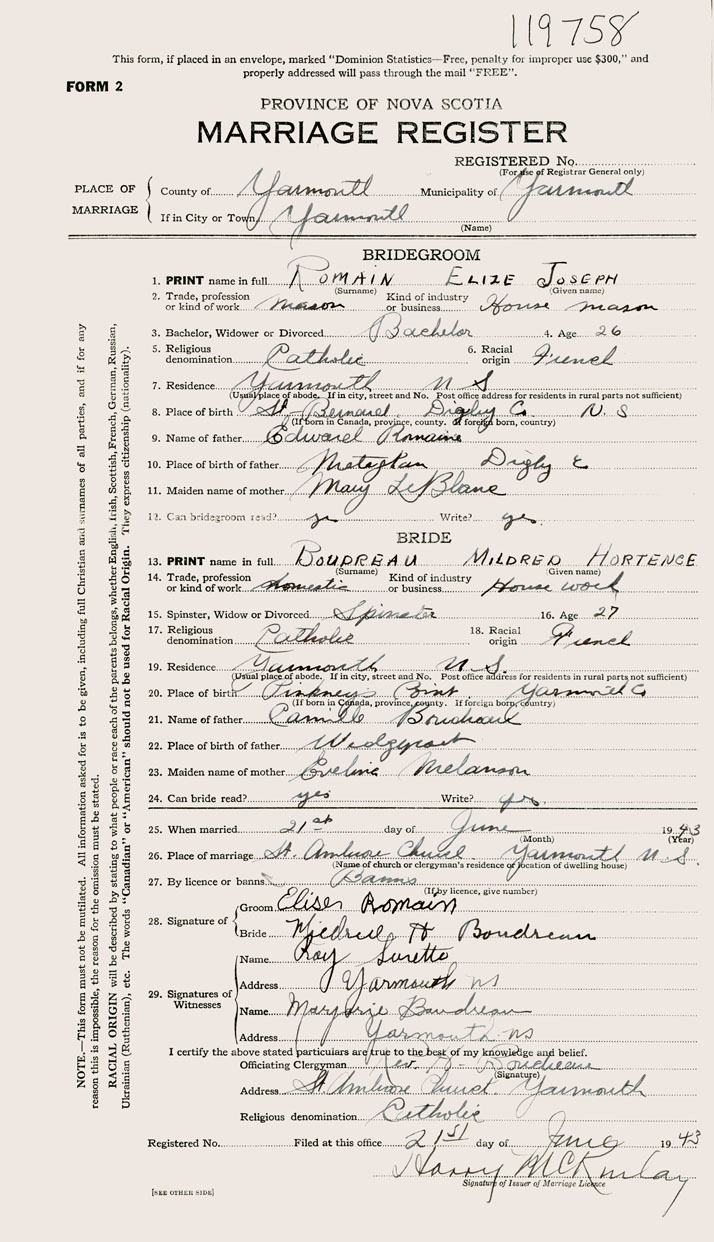 119758
This form, if placed in an envelope, marked "Dominion Statistics—Free, penalty for improper use $300," and
properly addressed will pass through the mail "FREE".
FORM 2
PROVINCE OF NOVA SCOTIA
MARRIAGE REGISTER
REGISTERED No.
(For use of Registrar General only)
PLACE OF MARRIAGE
County of Yarmouth Municipality of Yarmouth
If in City or Town Yarmouth
(Name)
BRIDEGROOM
1. PRINT name in full ROMAIN ELIZE JOSEPH
(Surname) (Given name)
2. Trade, profession or kind of work mason Kind of industry or business House mason
3. Bachelor, Widower or Divorced Bachelor 4. Age 26
5. Religious denomination Catholic 6. Racial origin French
7. Residence Yarmouth N S
(Usual place of abode. If in city, street and No. Post office address for residents in rural parts not sufficient)
8. Place of birth St. Bernard Digby Co N. S
(If born in Canada, province, county. If foreign born, country)
9. Name of father Edward Romaine
10. Place of birth of father Metaghan Digby
11. Maiden name of mother Mary LeBlanc
12. Can bridegroom read? yes Write? yes
BRIDE
13. PRINT name in full BOUDREAU MILDRED HORTENCE
(Surname) (Given name)
14. Trade, profession or kind of work domestic Kind of industry or business House work
15. Spinster, Widow or Divorced Spinster 16. Age 27
17. Religious denomination Catholic 18. Racial origin French
19. Residence Yarmouth N. S.
(Usual place of abode. If in city, street and No. Post office address for residents in rural parts not sufficient)
20. Place of birth Pinkney's Point Yarmouth Co
(If born in Canada, province, county. If foreign born, country)
21. Name of father Camille Boudreau
22. Place of birth of father Wedgeport
23. Maiden name of mother Eveline Melanson
24. Can bride read? yes Write? yes
25. When married 21st day of June 1943
(Month) (Year)
26. Place of marriage St. Ambrose Church Yarmouth N. S.
(Name of church or clergyman's residence or location of dwelling house)
27. By licence or banns Banns
(If by licence, give number)
28. Signature of
Groom Eliser Romain
Bride Mildred H Boudreau
29. Signatures of Witnesses
Name Ray Surette
Address Yarmouth NS
Name Marjorie Boudreau
Address Yarmouth NS
I certify the above stated particulars are true to the best of my knowledge and belief.
Officiating Clergyman Rev.
(Signature)
Address St Ambrose Church. Yarmouth
Religious denomination Catholic
Registered No. Filed at this office 21st day of June 1943
Harry McKinlay
Signature of Issuer of Marriage Licence
[SEE OTHER SIDE]
NOTE.—This form must not be mutilated. All information asked for is to be given, including full Christian and surnames of all parties, and if for any
reason this is impossible, the reason for the omission must be stated.
RACIAL ORIGIN will be described by stating to what people or race each of the parents belongs, whether English, Irish, Scottish, French, German, Russian,
Ukrainian (Ruthenian), etc. The words "Canadian" or "American" should not be used for Racial Origin. They express citizenship (nationality).